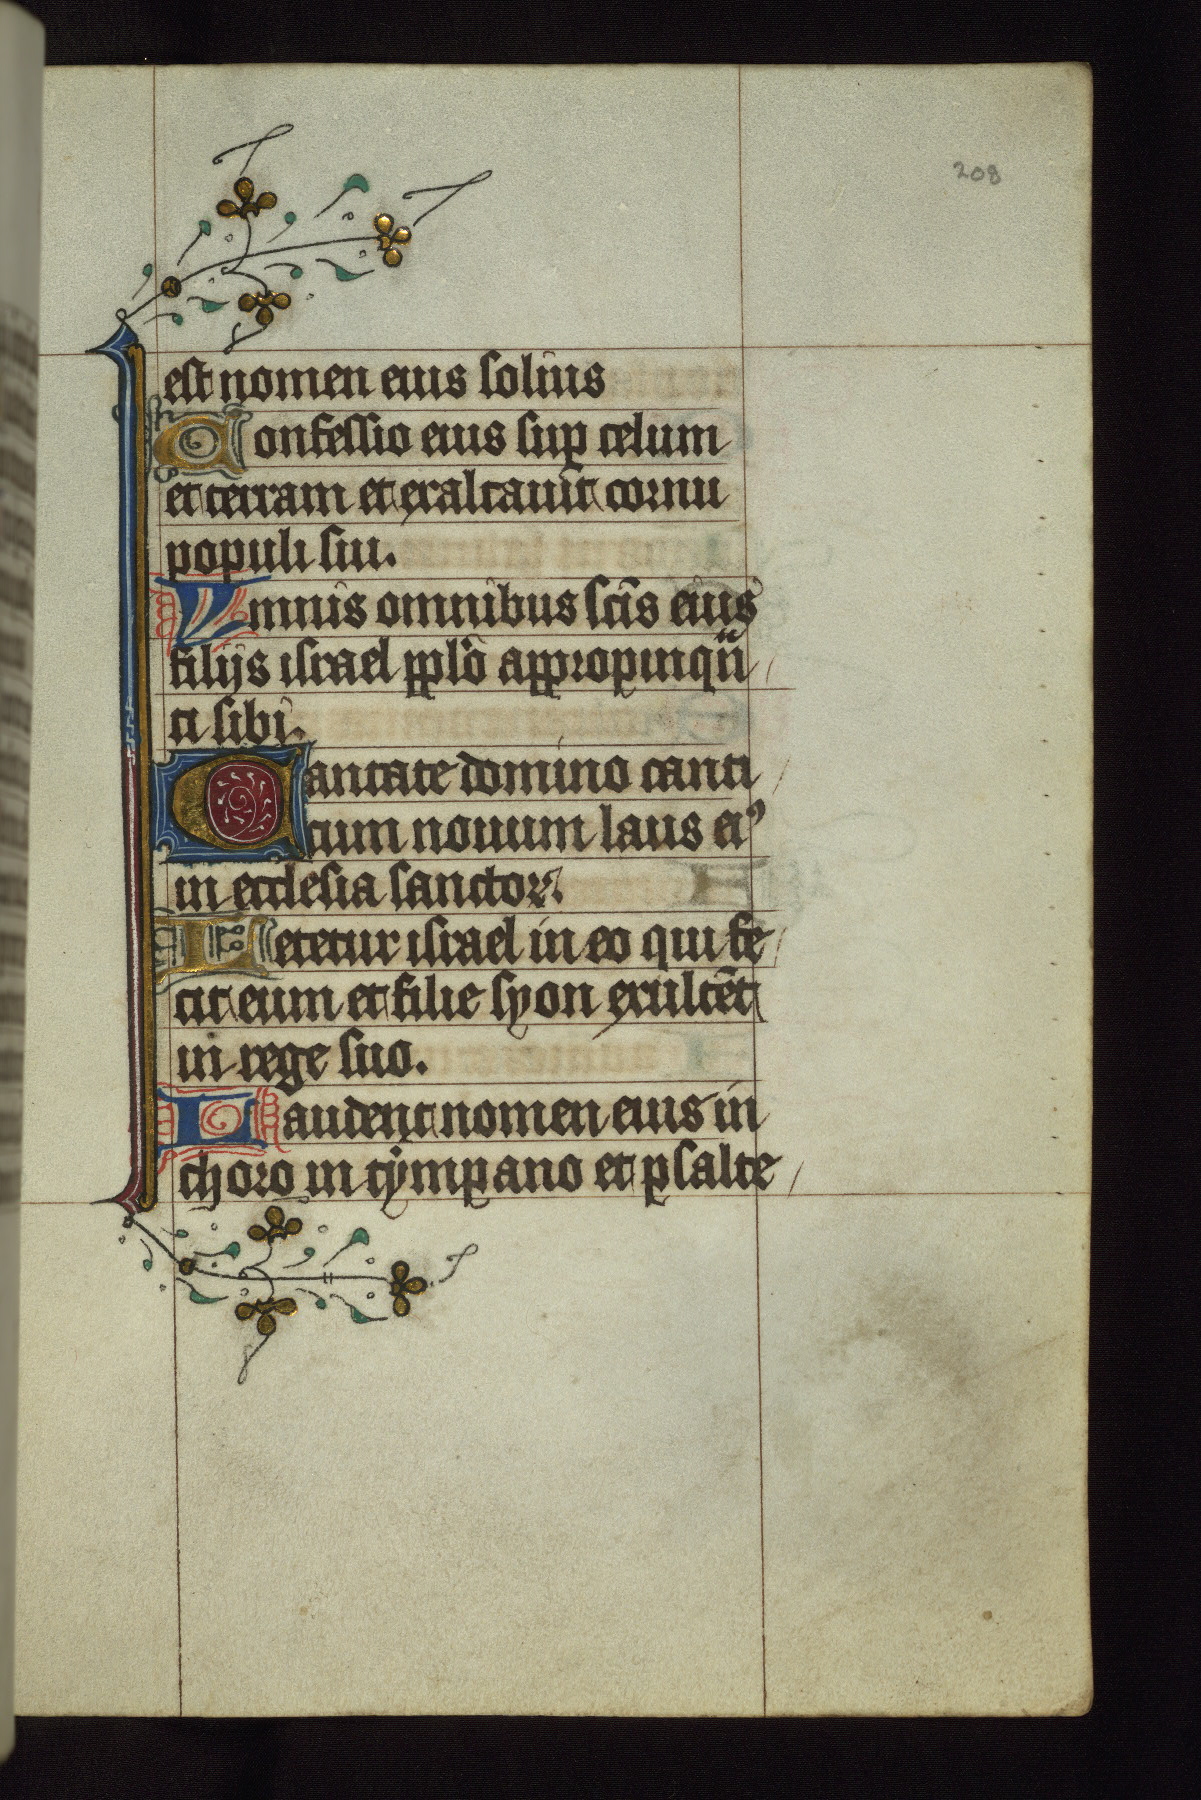 208
est nomen eius solius
Confessio eius sup celum
et terram et exaltauit cornu
populi sui.
Ymnis omnibus scīs eius
filijs israel pplō appropinquā
ti sibi.
Cantate domino canti
cum nouum laus ei⁹
in ecclesia sanctoꝝ.
Letetur israel in eo qui fe
cit eum et filie syon exultēt
in rege suo.
Laudent nomen eius in
choro in tympano et psalte